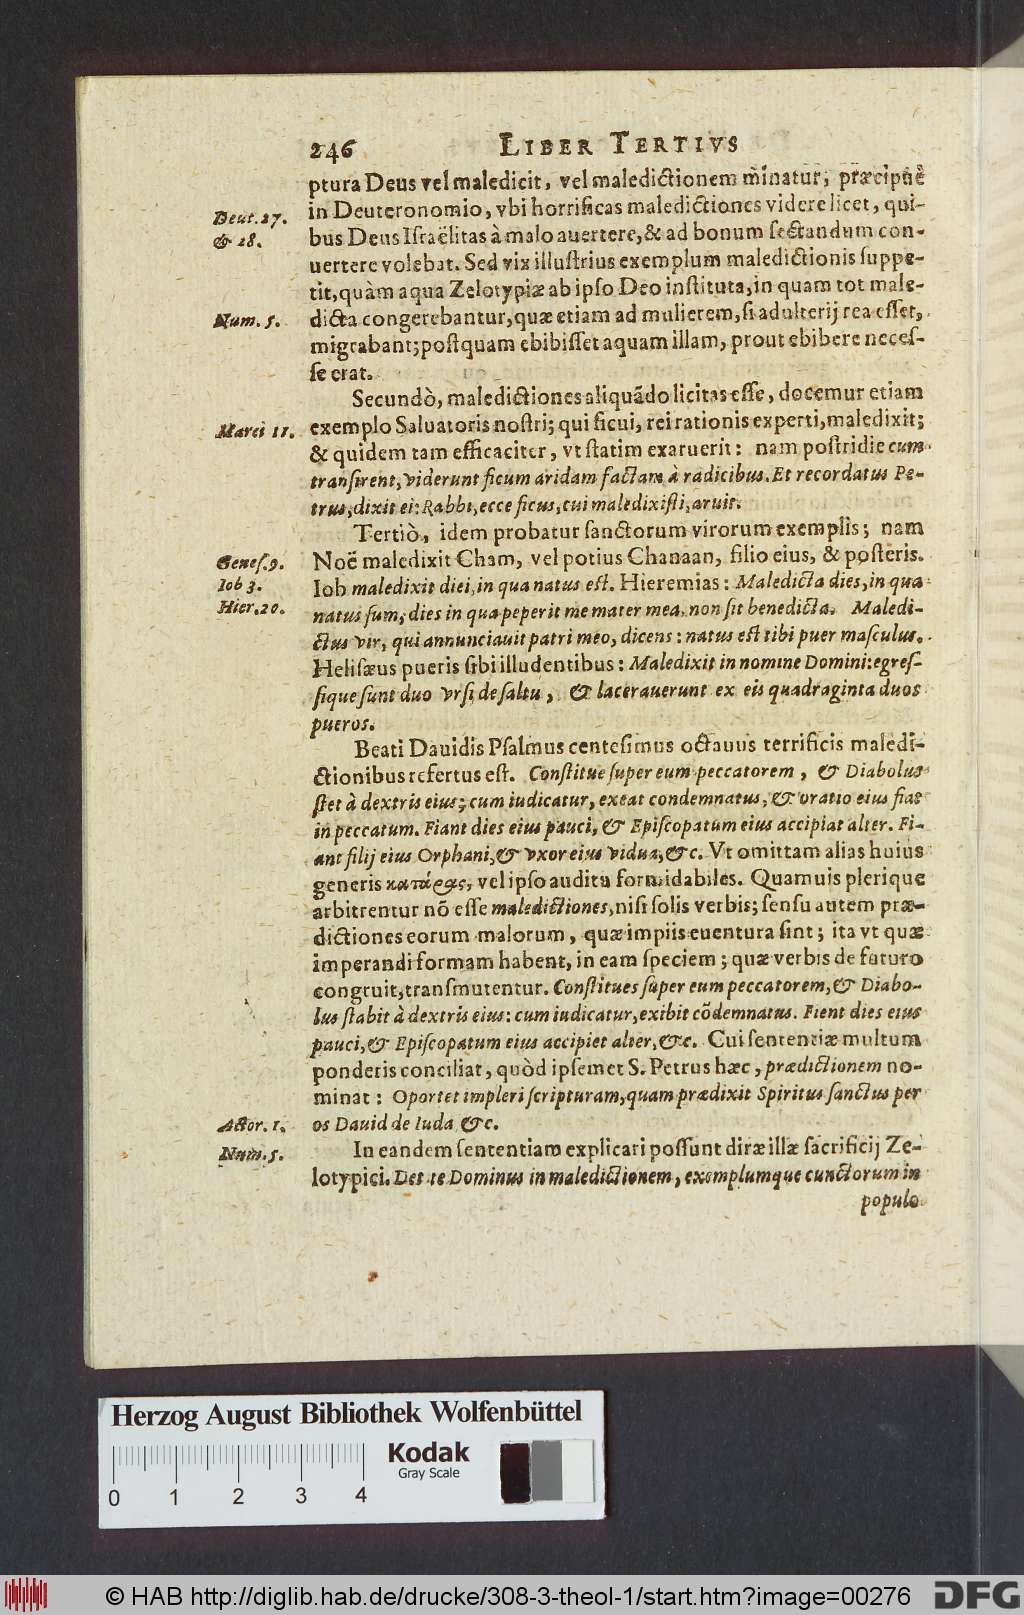 246 LIBER TERTIVS
ptura Deus vel maledicit, vel maledictionem minatur, præcipuè
in Deuteronomio, vbi horrificas maledictiones videre licet, qui-
Deut. 27.
& 28.
bus Deus Iſraëlitas à malo auertere, & ad bonum ſectandum con-
uertere volebat. Sed vix illuſtrius exemplum maledictionis ſuppe-
tit, quàm aqua Zelotypiæ ab ipſo Deo inſtituta, in quam tot male-
Num. 5.
dicta congerebantur, quæ etiam ad mulierem, ſi adulterij rea eſſet,
migrabant; poſtquam ebibiſſet aquam illam, prout ebibere neceſ-
ſe erat.
Secundò, maledictiones aliquãdo licitas eſſe, docemur etiam
Marci 11.
exemplo Saluatoris noſtri; qui ficui, rei rationis experti, maledixit;
& quidem tam efficaciter, vt ſtatim exaruerit: nam poſtridie cum
tranſirent, viderunt ficum aridam factam à radicibus. Et recordatus Pe-
trus, dixit ei: Rabbi, ecce ficus, cui maledixiſti, aruit.
Tertiò, idem probatur ſanctorum virorum exemplis; nam
Geneſ. 9.
Noë maledixit Cham, vel potius Chanaan, filio eius, & poſteris.
Iob 3.
Iob maledixit diei, in qua natus eſt. Hieremias: Maledicta dies, in qua
Hier. 20.
natus ſum, dies in qua peperit me mater mea, non ſit benedicta. Maledi-
ctus vir, qui annunciauit patri meo, dicens: natus eſt tibi puer maſculus.
Heliſæus pueris ſibi illudentibus: Maledixit in nomine Domini: egreſ-
ſique ſunt duo vrſi de ſaltu, & lacerauerunt ex eis quadraginta duos
pueros.
Beati Dauidis Pſalmus centeſimus octauus terrificis maledi-
ctionibus refertus eſt. Conſtitue ſuper eum peccatorem, & Diabolus
ſtet à dextris eius; cum iudicatur, exeat condemnatus, & oratio eius fiat
in peccatum. Fiant dies eius pauci, & Epiſcopatum eius accipiat alter. Fi-
ant filij eius Orphani, & vxor eius vidua, &c. Vt omittam alias huius
generis κατάρας, vel ipſo auditu formidabiles. Quamuis plerique
arbitrentur nõ eſſe maledictiones, niſi ſolis verbis; ſenſu autem præ-
dictiones eorum malorum, quæ impiis euentura ſint; ita vt quæ
imperandi formam habent, in eam ſpeciem; quæ verbis de futuro
congruit, tranſmutentur. Conſtitues ſuper eum peccatorem, & Diabo-
lus ſtabit à dextris eius: cum iudicatur, exibit cõdemnatus. Fient dies eius
pauci, & Epiſcopatum eius accipiet alter, &c. Cui ſententiæ multum
ponderis conciliat, quòd ipſemet S. Petrus hæc, prædictionem no-
minat: Oportet impleri ſcripturam, quam prædixit Spiritus ſanctus per
Actor. 1.
os Dauid de Iuda &c.
Num. 5.
In eandem ſententiam explicari poſſunt diræ illæ ſacrificij Ze-
lotypici. Det te Dominus in maledictionem, exemplumque cunctorum in
populo
Herzog August Bibliothek Wolfenbüttel
Kodak
Gray Scale
0 1 2 3 4
© HAB http://diglib.hab.de/drucke/308-3-theol-1/start.htm?image=00276
DFG